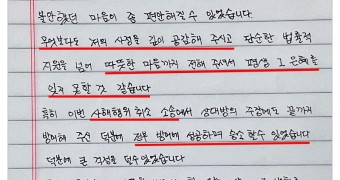 불안했던 마음이 좀 편안해질 수 있었습니다.
무엇보다도 저의 사정을 깊이 공감해 주시고 단순한 법률적
지원을 넘어 따뜻한 마음까지 전해 주셔서 평생 그 은혜를
잊지 못할 것 같습니다.
특히 이번 사해행위 취소 소송에서 상대방의 주장에도 끝까지
방어해 주신 덕분에 전부 방어에 성공하여 승소 할 수 있었습니다
덕분에 큰 걱정을 덜 수 있었습니다